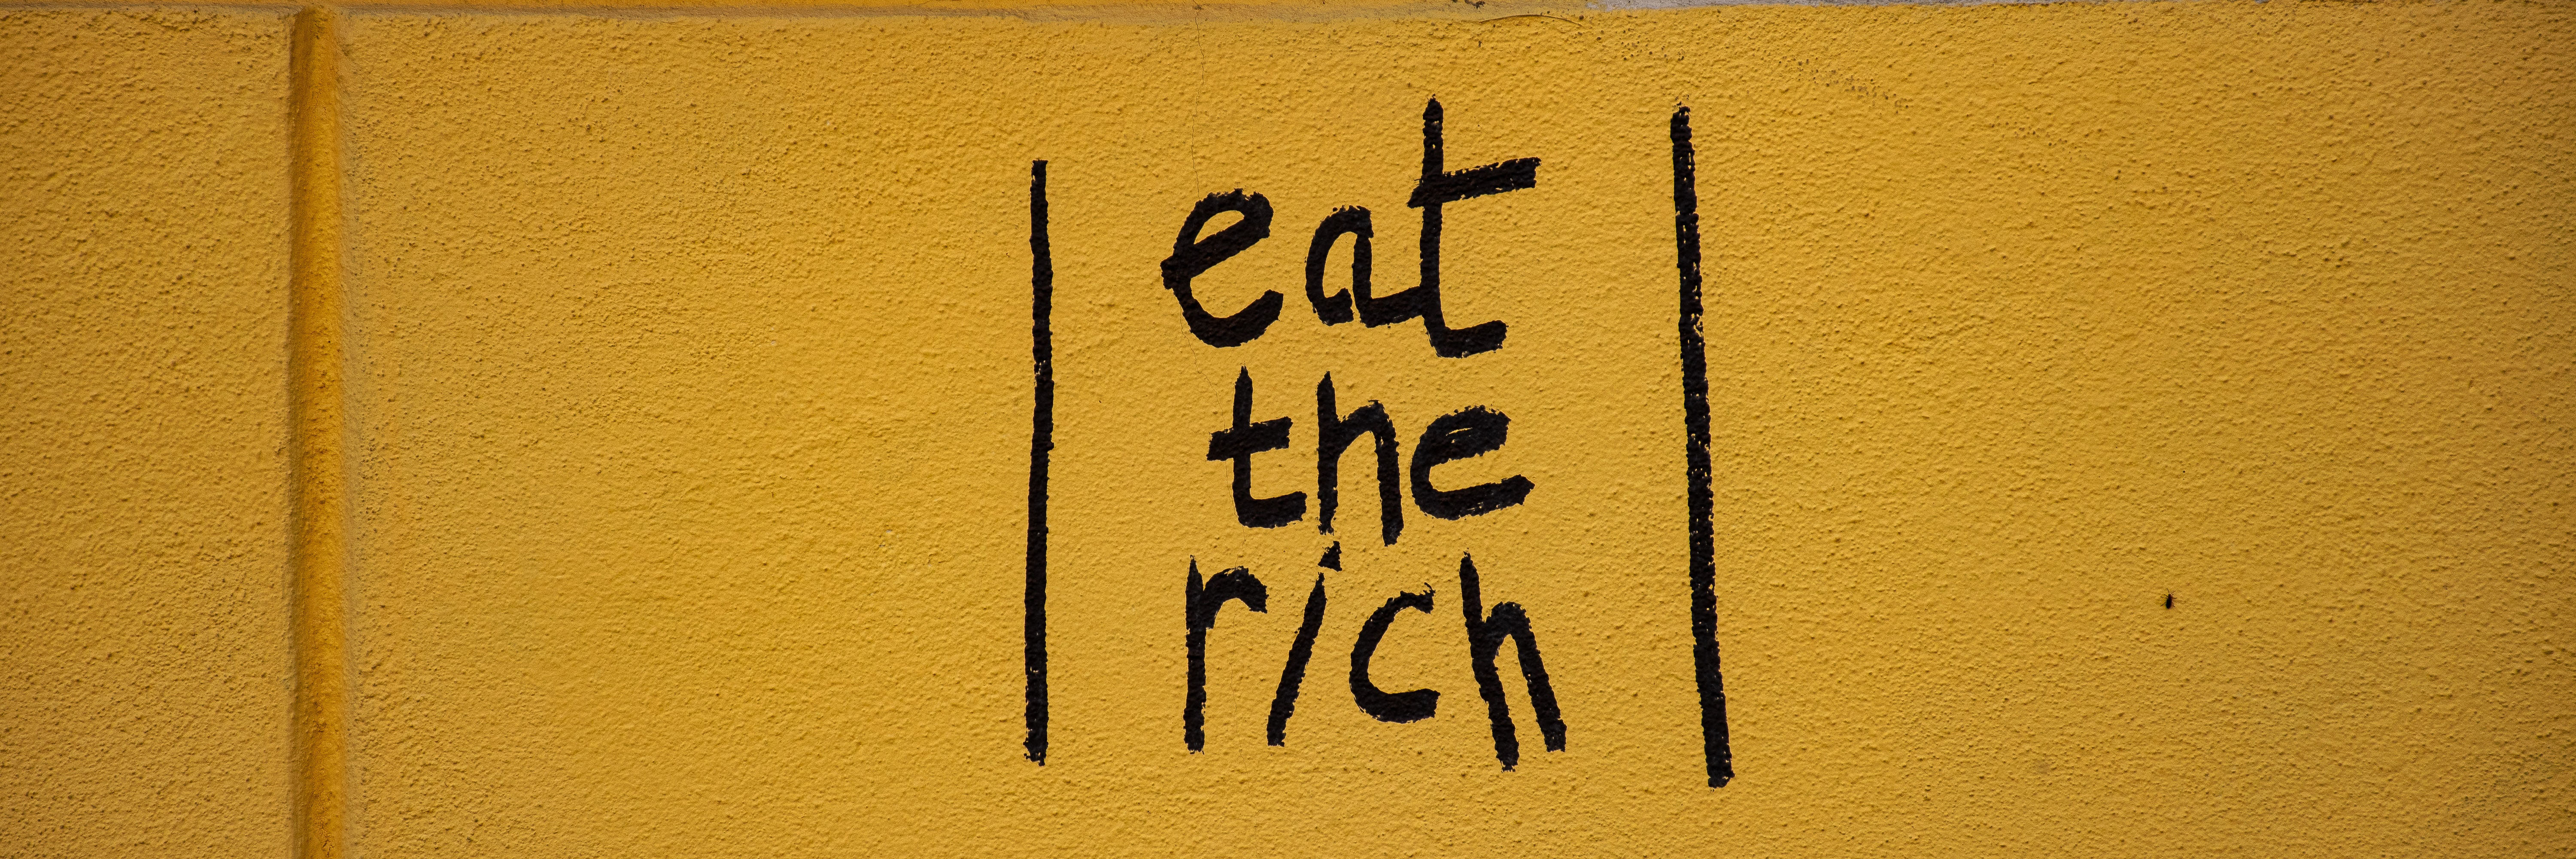 eat
the
rich